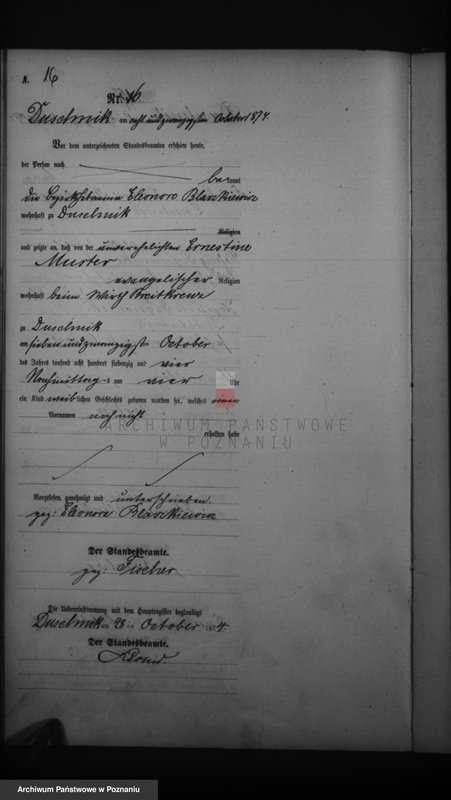 B. 16
Nr. 16
Duschnik am acht und zwanzigsten October 1874
Vor dem unterzeichneten Standesbeamten erschien heute,
der Person nach
be kannt
die Bezirkshebamme Eleonore Blaszkiewicz
wohnhaft zu Duschnik
Religion
und zeigte an, daß von der unverehelichten Ernestine
Muster
evangelischer Religion
wohnhaft beim Wirth Breitkreuz
zu Duschnik
am sieben und zwanzigsten October
des Jahres tausend acht hundert siebenzig und vier
Nachmittags um vier Uhr
ein Kind weiblichen Geschlechts geboren worden sei, welches einen
Vornamen noch nicht
erhalten habe
ARCHIWUM PAŃSTWOWE
W POZNANIU
Vorgelesen, genehmigt und unterschrieben
gez: Eleonora Blaszkiewicz
Der Standesbeamte.
gez: Fischer.
Die Uebereinstimmung mit dem Hauptregister beglaubigt
Duschnik am 28 ten October 1874.
Der Standesbeamte.
Archiwum Państwowe w Poznaniu